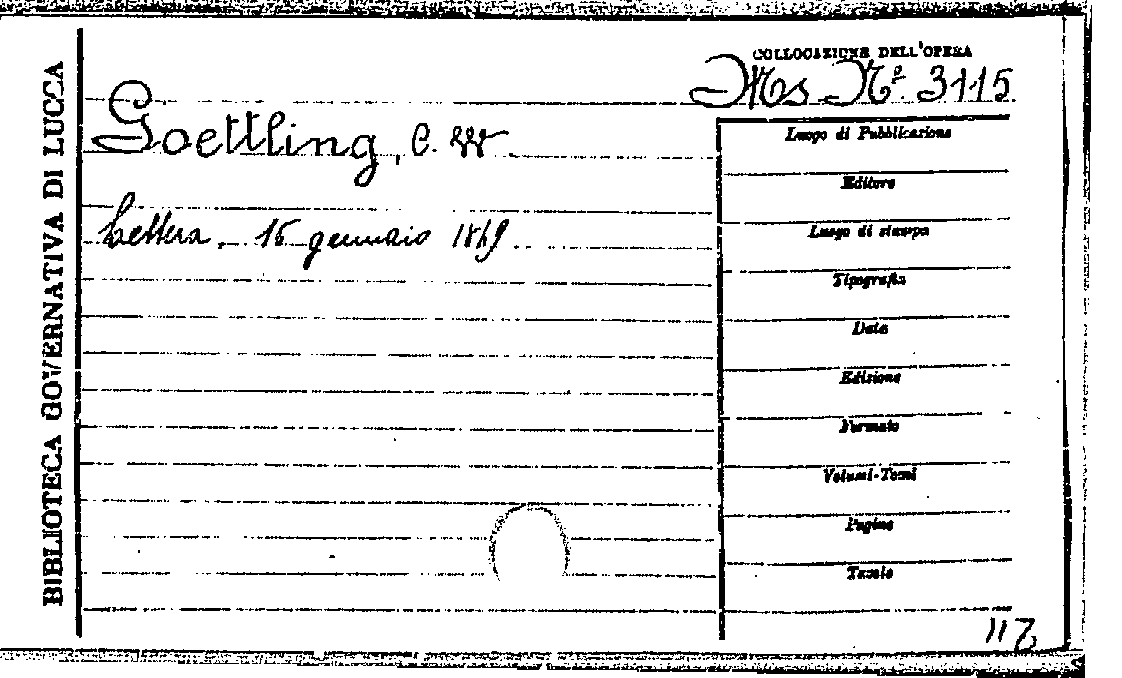 BIBLIOTECA GOVERNATIVA DI LUCCA
COLLOCAZIONE DELL'OPERA
Ms N.º 3115
Goettling, C. W.
Lettera, 16 gennaio
Luogo di Pubblicazione
Editore
Luogo di stampa
Tipografia
Data
Edizione
Formato
Volumi-Tomi
Pagine
Tavole